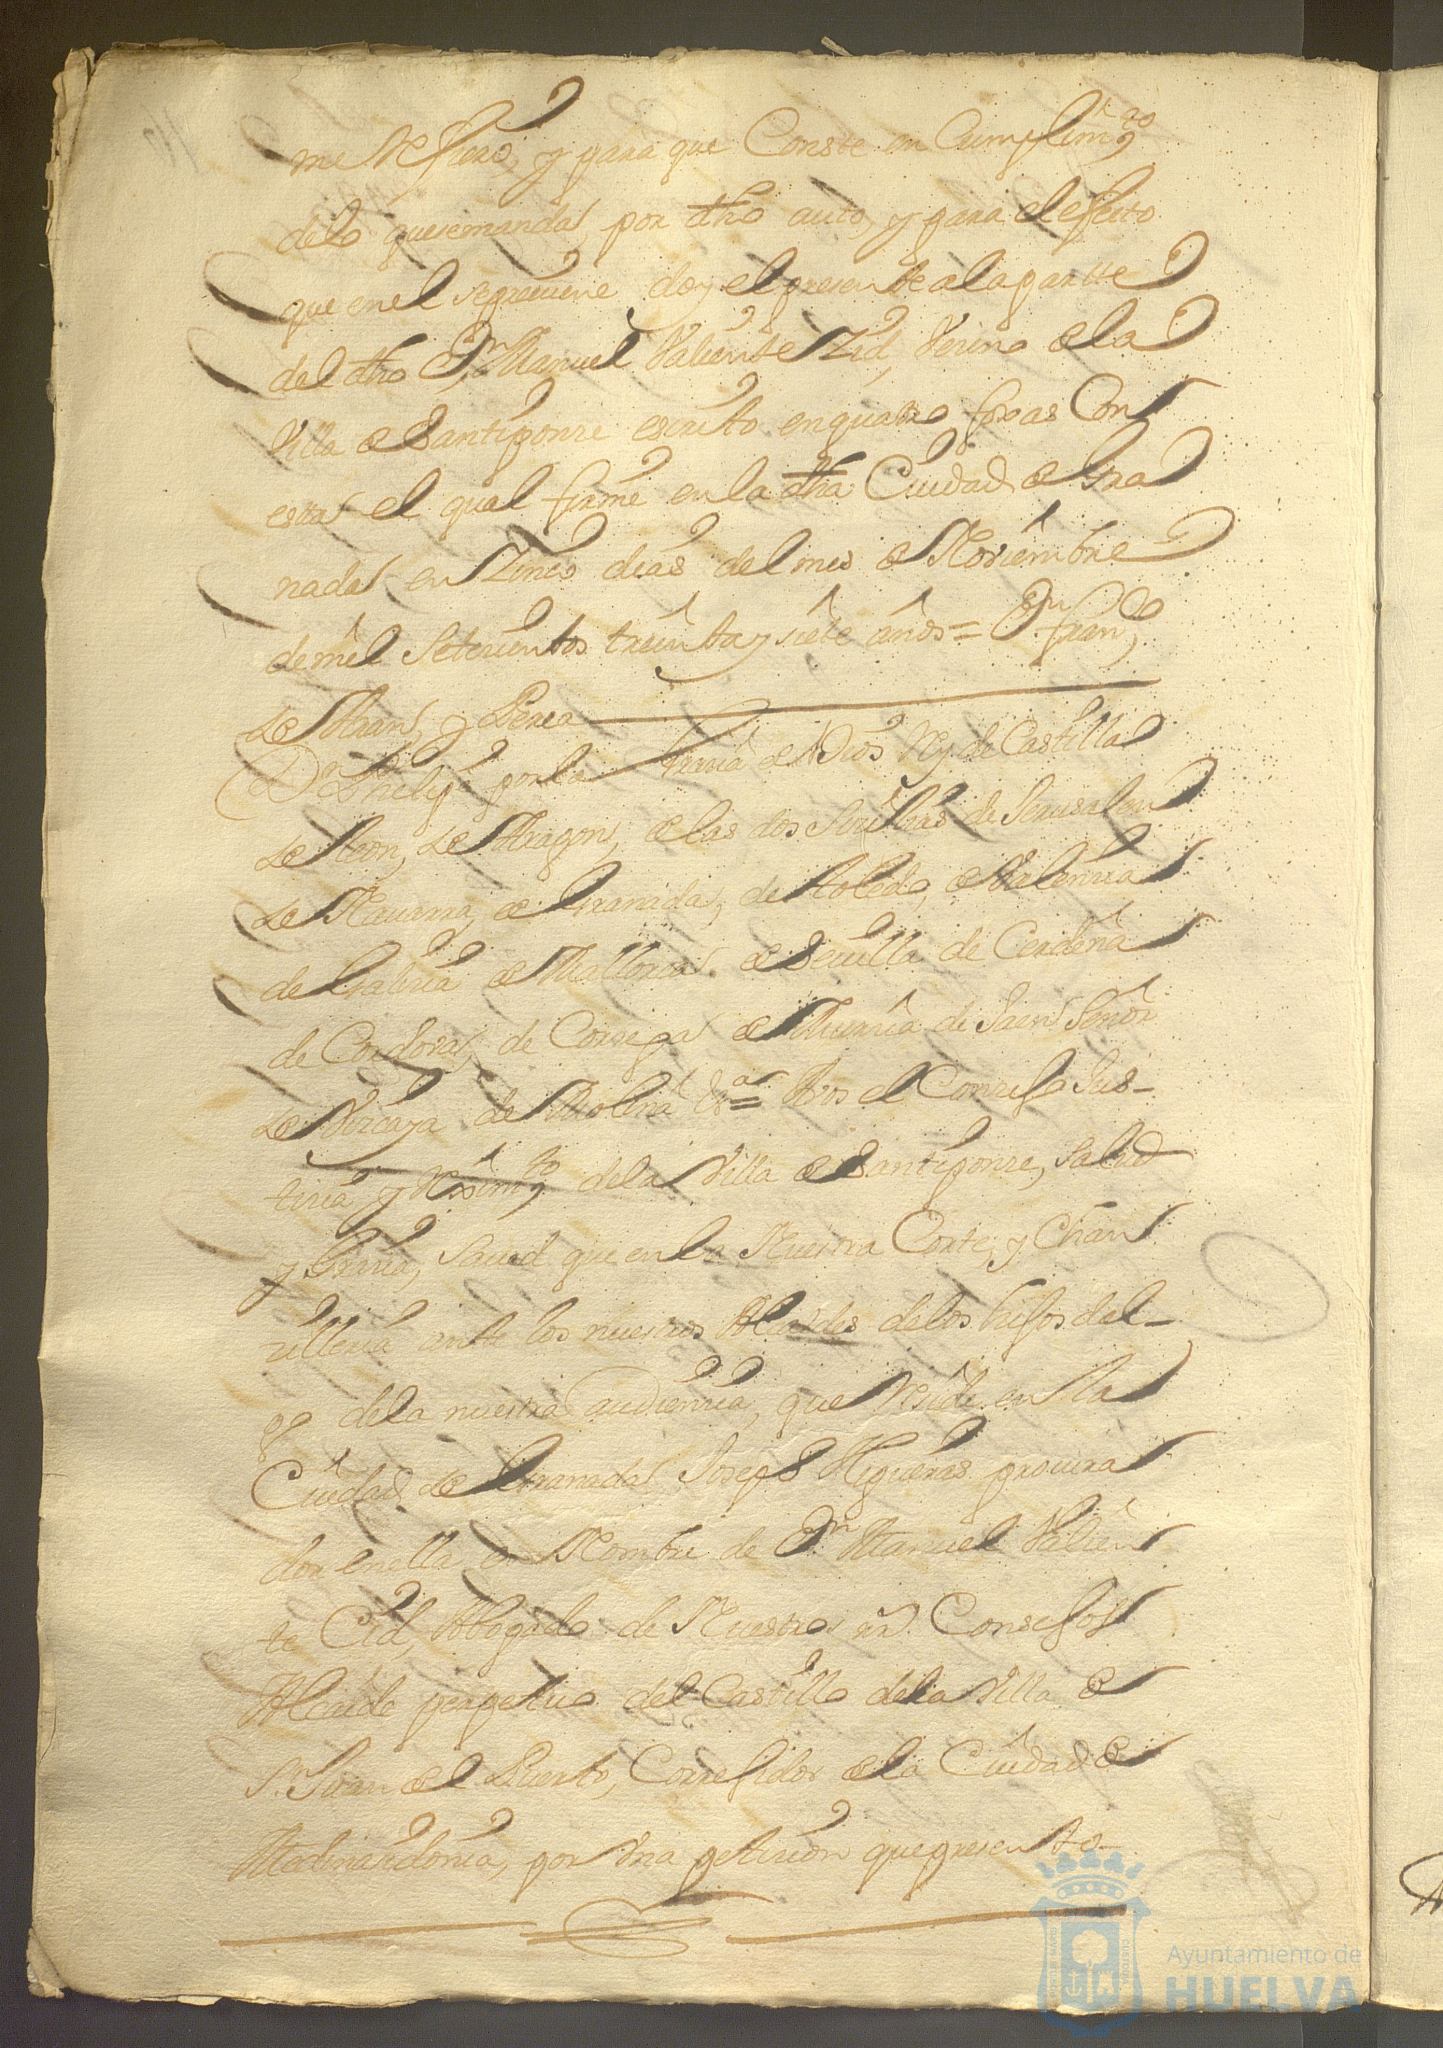 me Refiero, y para que Conste en Cumplim.to
delo quesemanda por dho auto, y para el efecto
que enel sepreviene doy el presente alaparte
del dho Dn Manuel Valiente Zid, Vecino de la
Villa de Santiponze escrito enquatro foxas Con
esta el qual firmé en la dha Ciudad de Gra
nada en Zinco dias del mes de Noviembre
de mil Setecientos treinta y siete años = Dn Fran.co
de Aran, y Perea
Dn Phelipe por la Gracia de Dios Rey de Castilla
de Leon, de Aragon, de las dos Sicilias de Jerusalen
de Navarra, de Granada, de Toledo, de Valencia
de Galicia de Mallorca de Sevilla de Cerdeña
de Cordova, de Corsega de Murcia de Jaen Señor
de Vizcaya de Molina &a = A Vos el Conzejo Jus-
ticia y Reximto dela Villa de Santiponze, Salud
y Gracia, Saued que en la Nuestra Corte, y Chan
zilleria ante los nuestros Alcaldes delos hijos dal-
go dela nuestra audiencia, que Reside en la
Ciudad de Granada Joseph Higueras procura
dor en ella en Nombre de Dn Manuel Valien
te Cid, Abogado de Nuestros RR. Consejos
Alcaide perpetuo del Castillo dela Villa de
Sn Juan del Puerto, Correjidor de la Ciudad de
Medinasidonia, por Una peticion quepresentó-
Ayuntamiento de
HUELVA